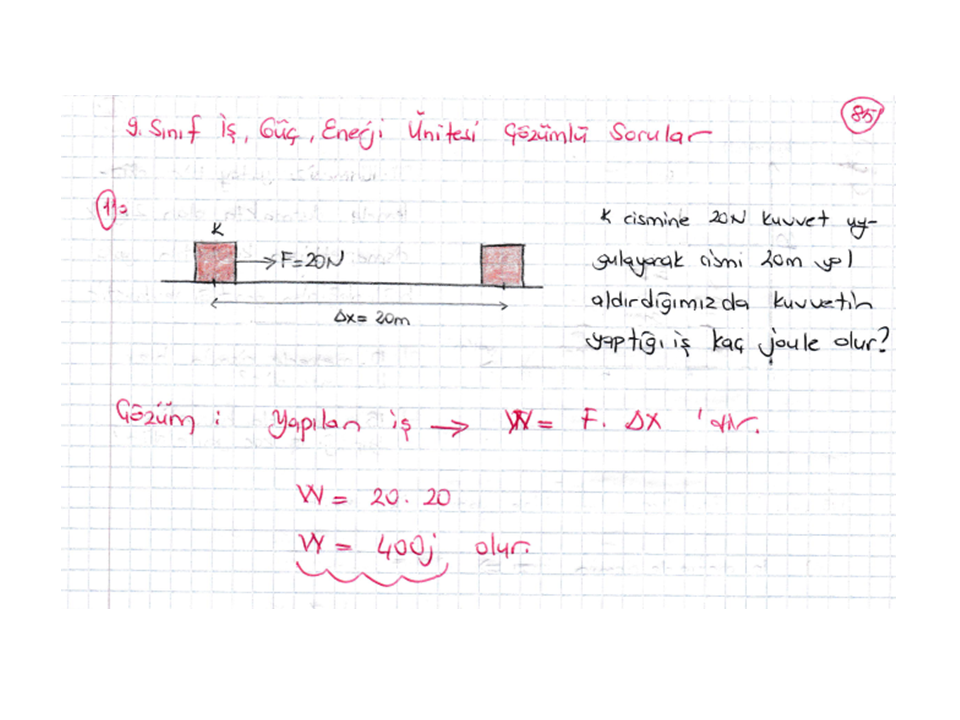 9. Sınıf İş, Güç, Enerji Ünitesi Çözümlü Sorular
85
1)
K
F=20N
Δx= 20m
K cismine 20N kuvvet uy-
gulayarak cismi 20m yol
aldırdığımızda kuvvetin
yaptığı iş kaç joule olur?
Çözüm : Yapılan iş → W = F. Δx 'dir.
W = 20. 20
W = 400j olur.